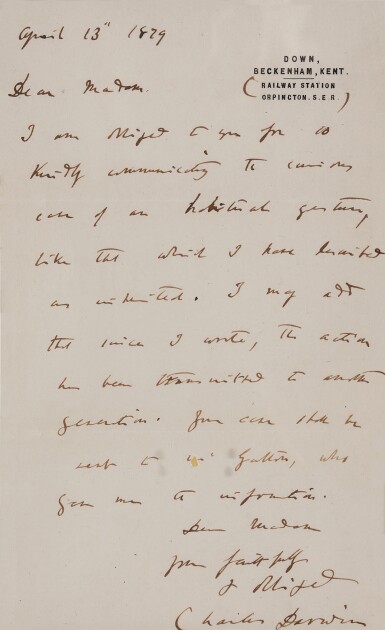 April 13th 1879
DOWN,
BECKENHAM, KENT.
(RAILWAY STATION
ORPINGTON. S.E.R.)
Dear Madam.
I am obliged to you for so
kindly communicating the curious
case of an habitual gesture,
like that which I have described
as inherited. I may add
that since I wrote, the action
has been transmitted to another
generation. Your case shall be
sent to Mr Galton, who
gave me the information.
Dear Madam
yours faithfully
& obliged
Charles Darwin